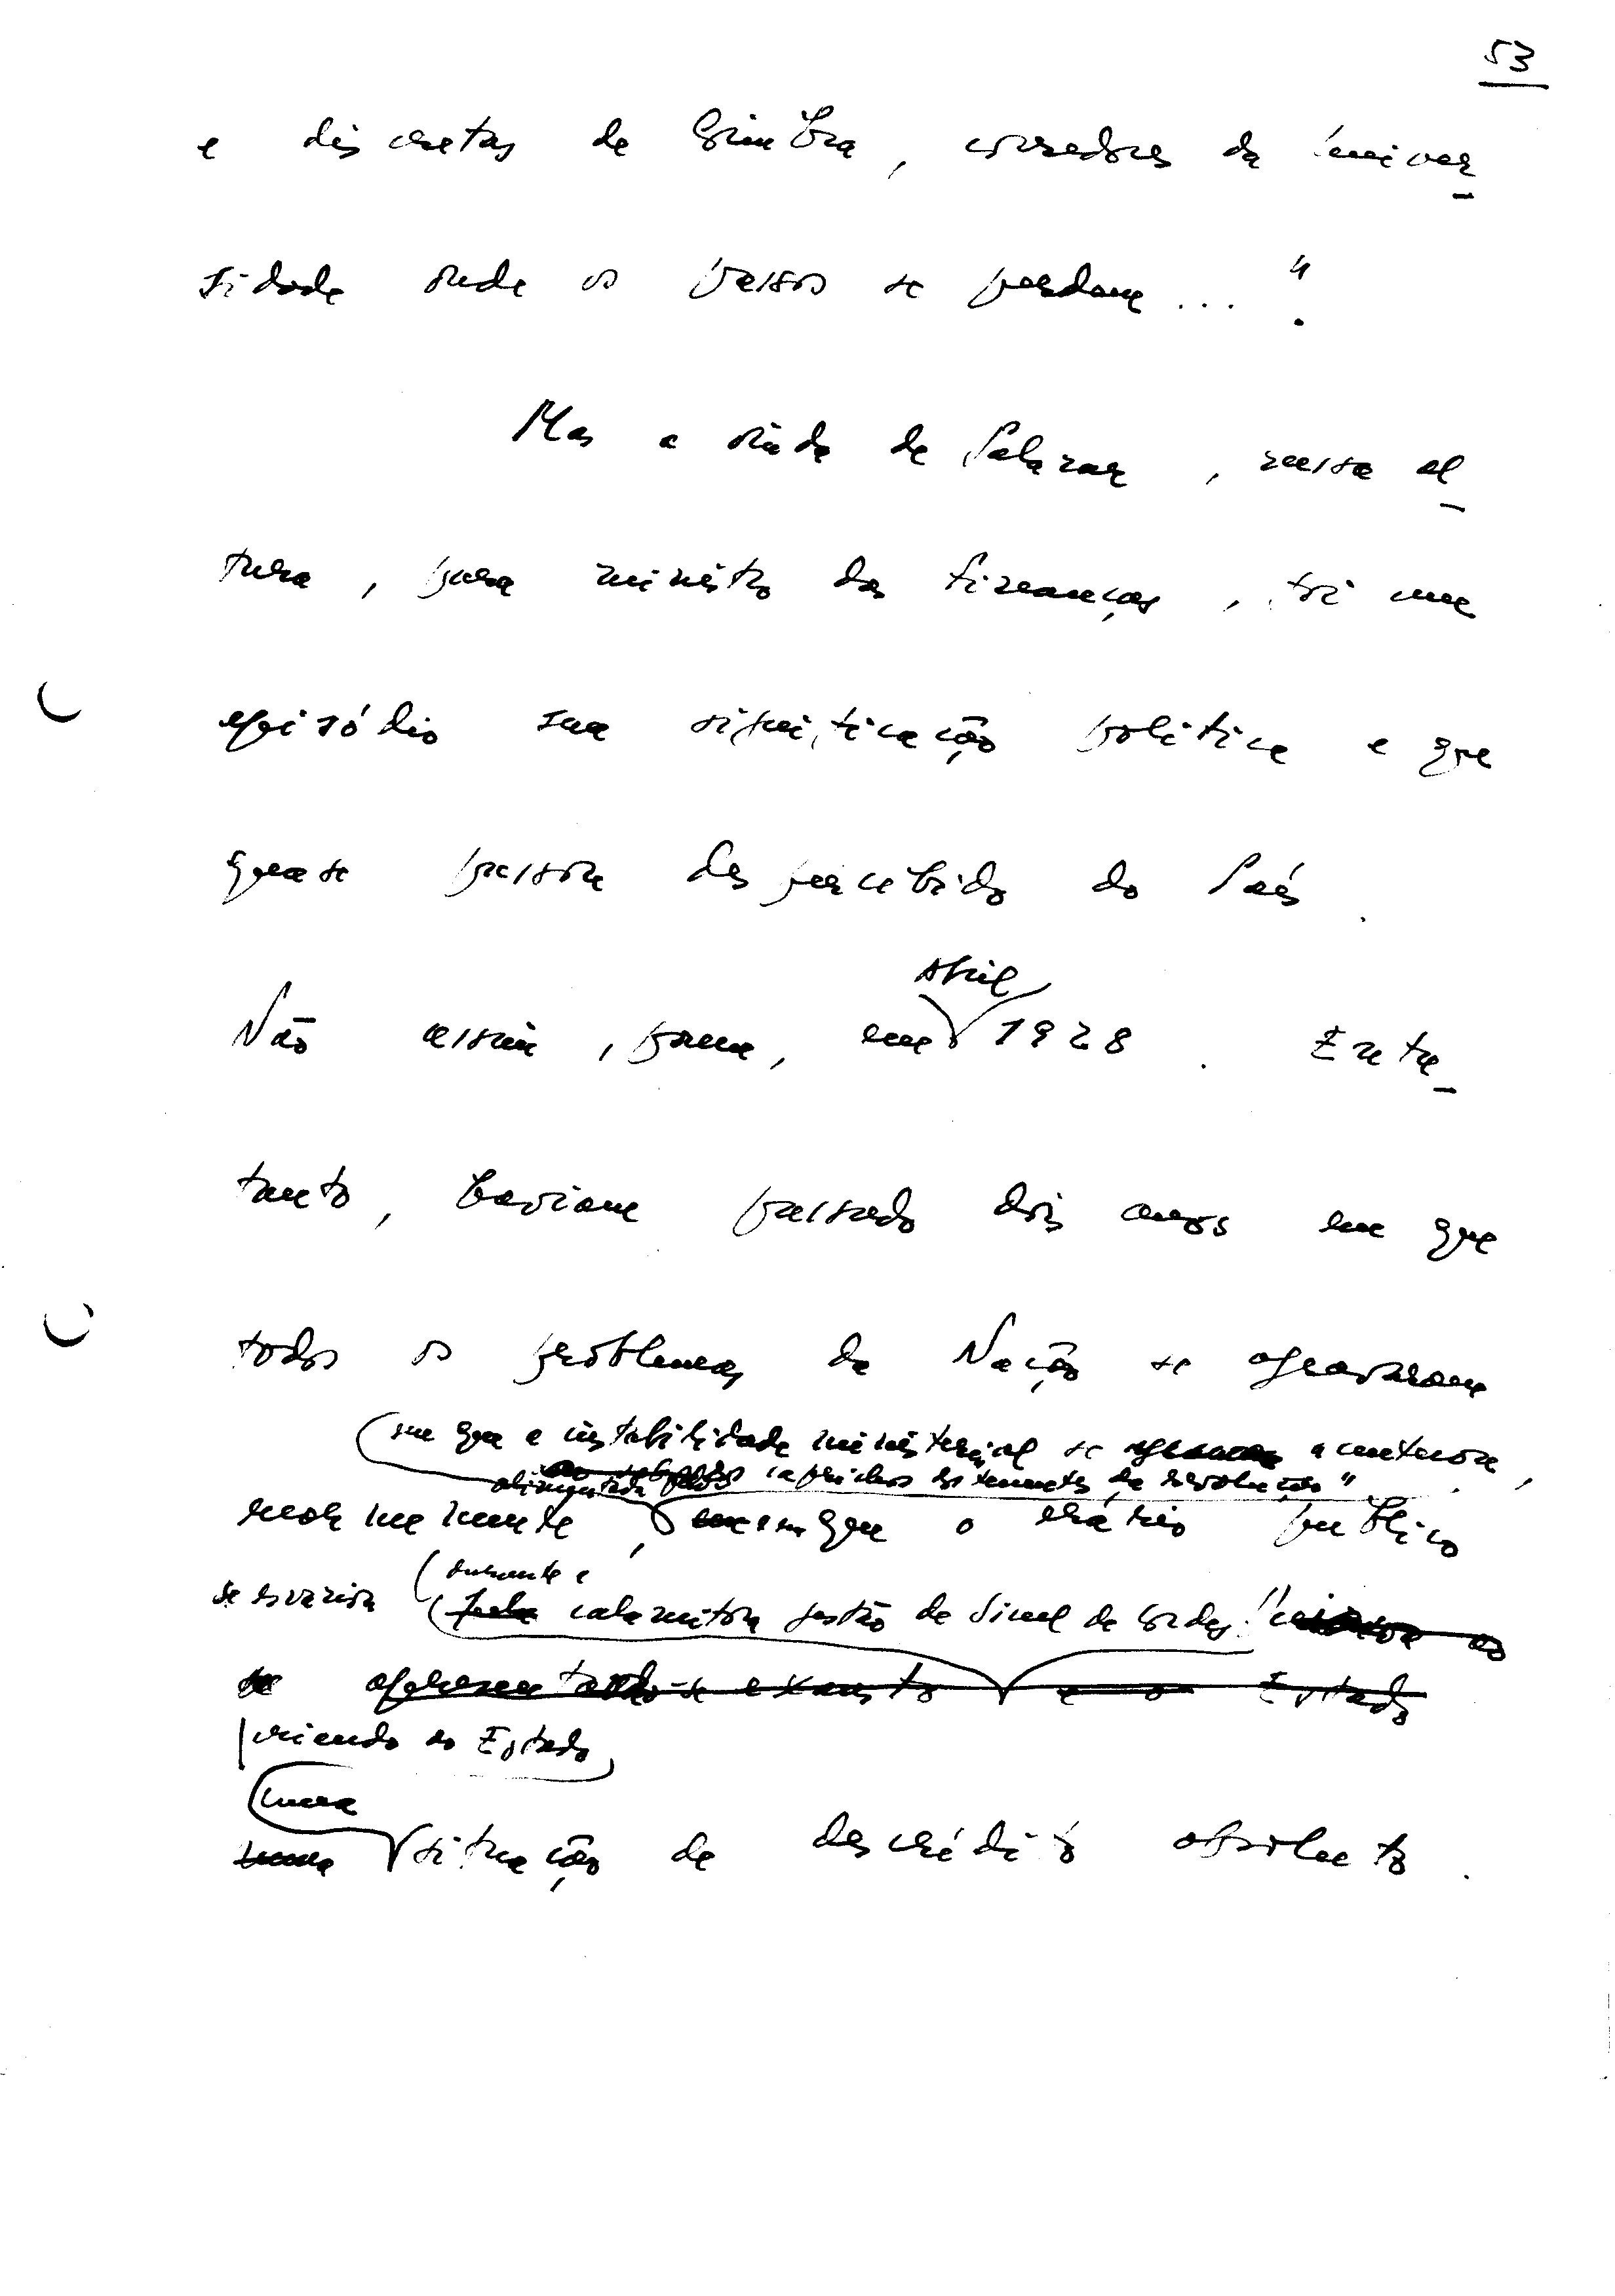 53
e discretas de Coimbra, corredores da Univer-
sidade onde os passos se perdem... ".
Mas a vinda de Salazar, nessa al-
tura, para ministro das finanças, foi um
episódio sem significação política e que
quase passou despercebido do País.
Abril
Não assim, porém, em 1928. Entre-
tanto, haviam passado dois anos em que
todos os problemas da Nação se agravaram
em que a instabilidade ministerial se acentuara,
alimentada pelos caprichos dos tenentes da revolução"
enormemente, em que o erário público
durante a
se esvazia pela calamitosa gestão de Sinel de Cordes
se apresentando-se exausto e o Estado
criando ao Estado
uma
uma situação de descrédito absoluto.